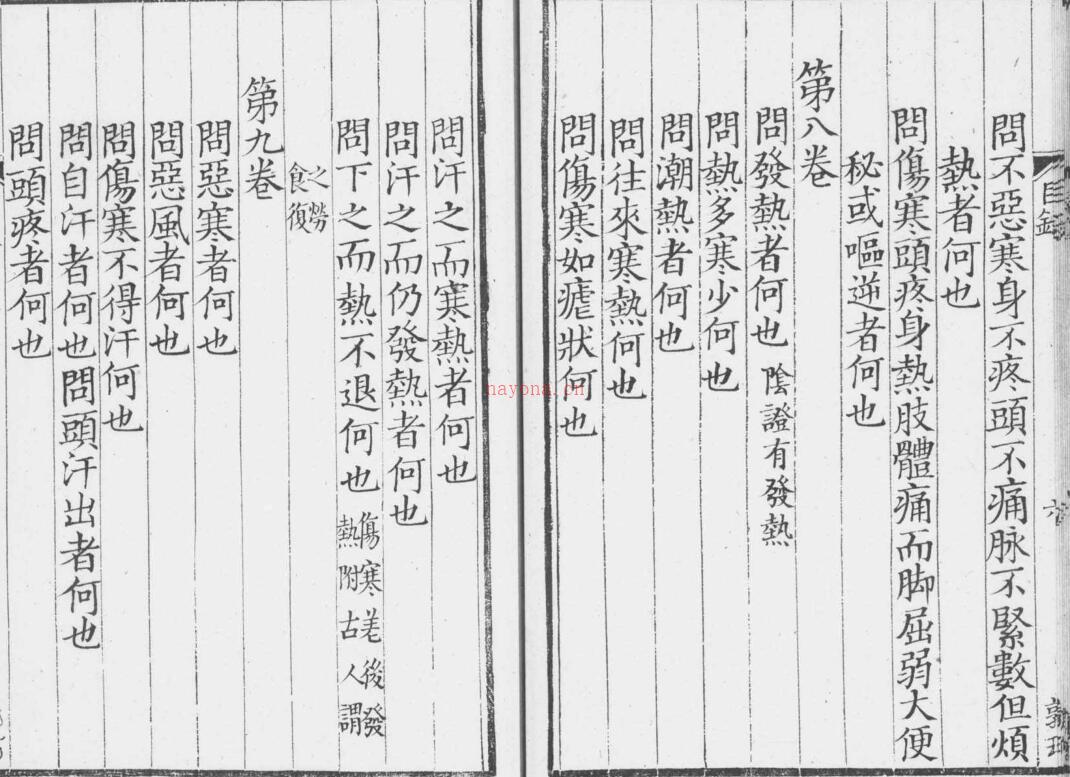 目錄
六
問不惡寒身不疼頭不痛脉不緊數但煩
熱者何也
問傷寒頭疼身熱肢體痛而脚屈弱大便
秘或嘔逆者何也
第八卷
問發熱者何也 陰證有發熱
問熱多寒少何也
問潮熱者何也
問往來寒熱何也
問傷寒如瘧狀何也
問汗之而寒熱者何也
問汗之而仍發熱者何也
問下之而熱不退何也 傷寒差後發
熱附古人謂
之勞
食復
第九卷
問惡寒者何也
問惡風者何也
問傷寒不得汗何也
問自汗者何也問頭汗出者何也
問頭疼者何也
nayona.cn